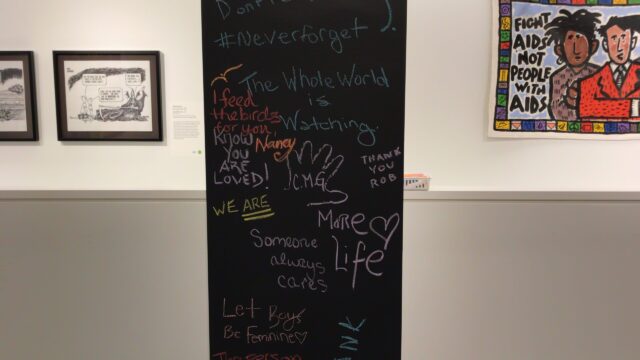 #Neverforget
The Whole World
is
Watching.
I feed
the birds
for you,
Nancy
KNOW
YOU
ARE
LOVED!
C.M.G
THANK
YOU
ROB
WE ARE
More
Life
Someone
always
cares
Let Boys
Be Feminine
FIGHT
AIDS
NOT
PEOPLE
WITH
AIDS